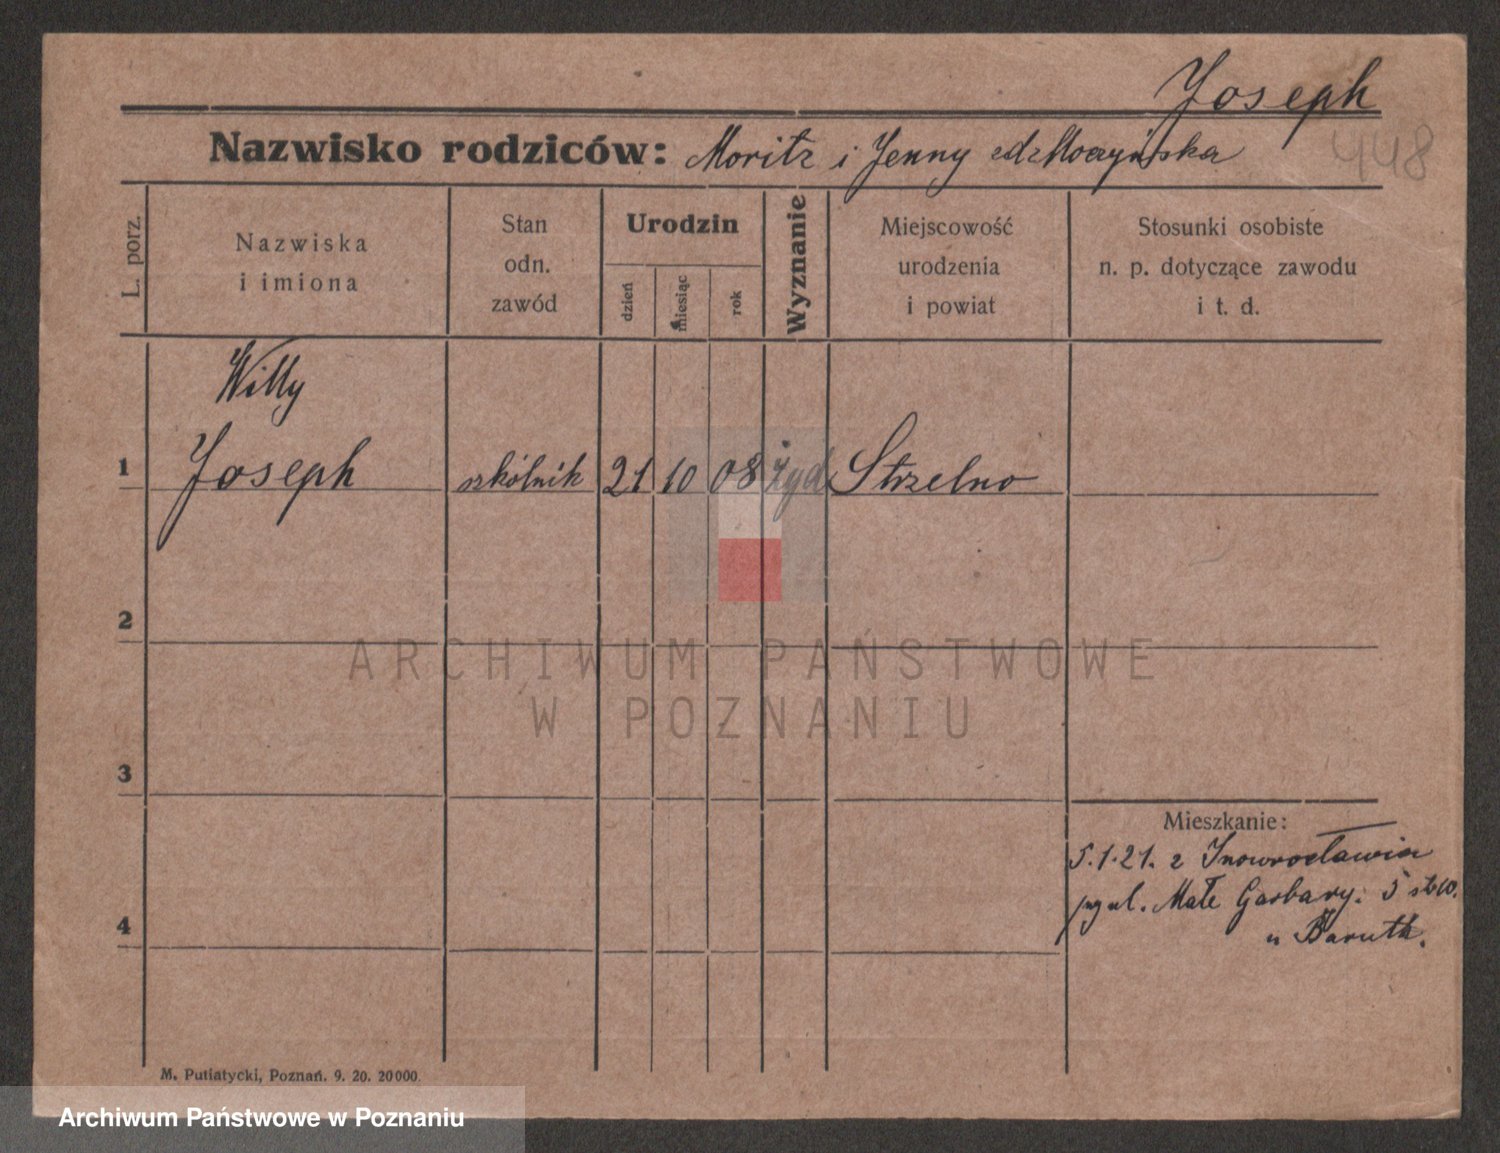 Joseph
Nazwisko rodziców: Moritz i Jenny
448
L. porz.
Nazwiska
i imiona
Stan
odn.
zawód
Urodzin
dzień
miesiąc
rok
Wyznanie
Miejscowość
urodzenia
i powiat
Stosunki osobiste
n. p. dotyczące zawodu
i t. d.
Willy
1 Joseph szkólnik 21 10 08 żyd Strzelno
2
3
4
Mieszkanie:
5.1.21. z Inowrocławia
ul. Małe Garbary. 5
u Baruth.
ARCHIWUM PAŃSTWOWE
W POZNANIU
M. Putiatycki, Poznań. 9. 20. 20000.
Archiwum Państwowe w Poznaniu